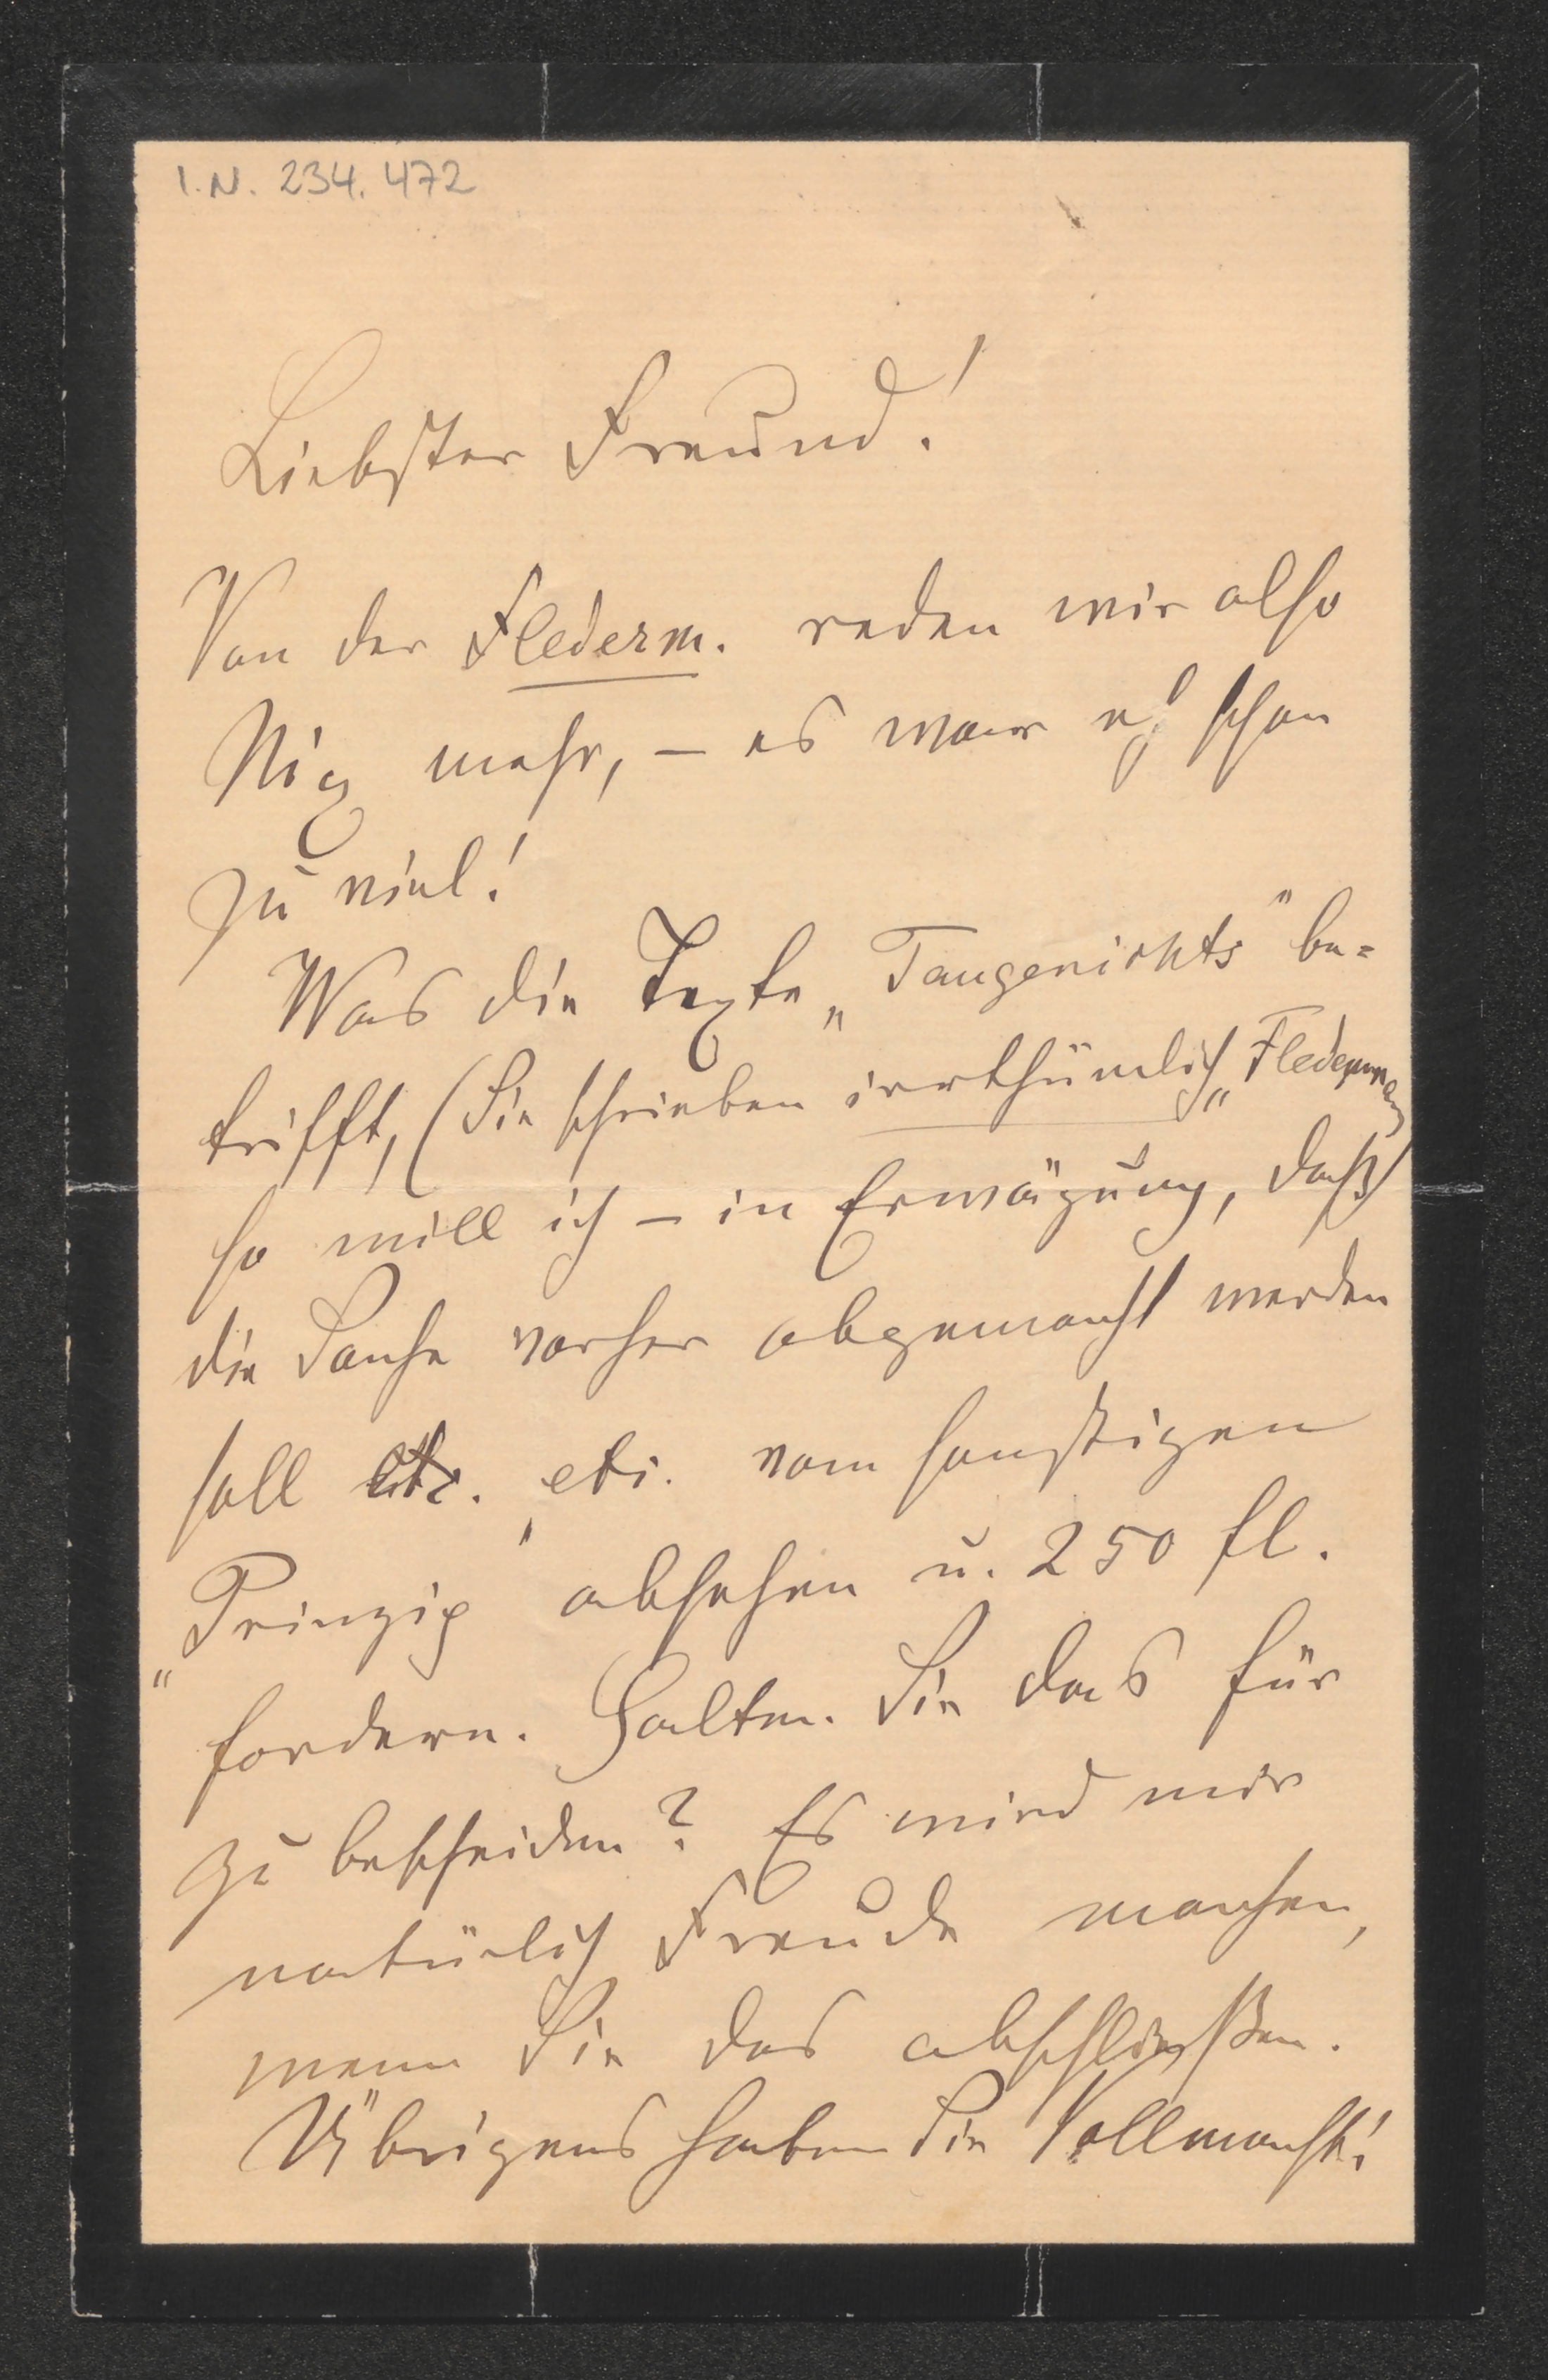 I.N. 234.472
Liebster Freund!
Von der Flederm. reden wir also
Nix mehr, – es war eh schon
zu viel!
Was die Texte „Taugenichts" be=
trifft, (Sie schrieben irrthümlich „Fledermaus
so will ich – in Erwägung, daß
die Sache vorher abgemacht werden
soll etc. etc. vom sonstigen
„Prinzip" absehen u. 250 fl.
fordern. Halten Sie das für
zu bescheiden? Es wird mir
natürlich Freude machen,
wenn Sie das abschließen.
Übrigens haben Sie Vollmacht!